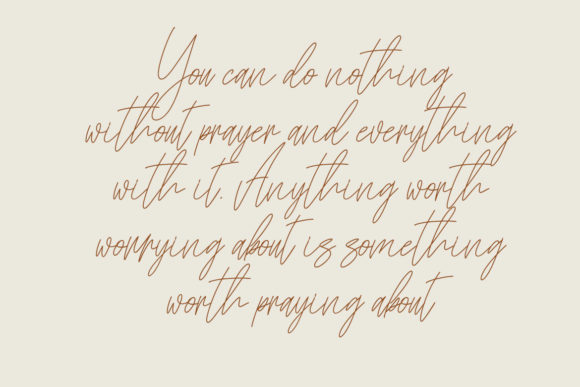 You can do nothing
without prayer and everything
with it. Anything worth
worrying about is something
worth praying about